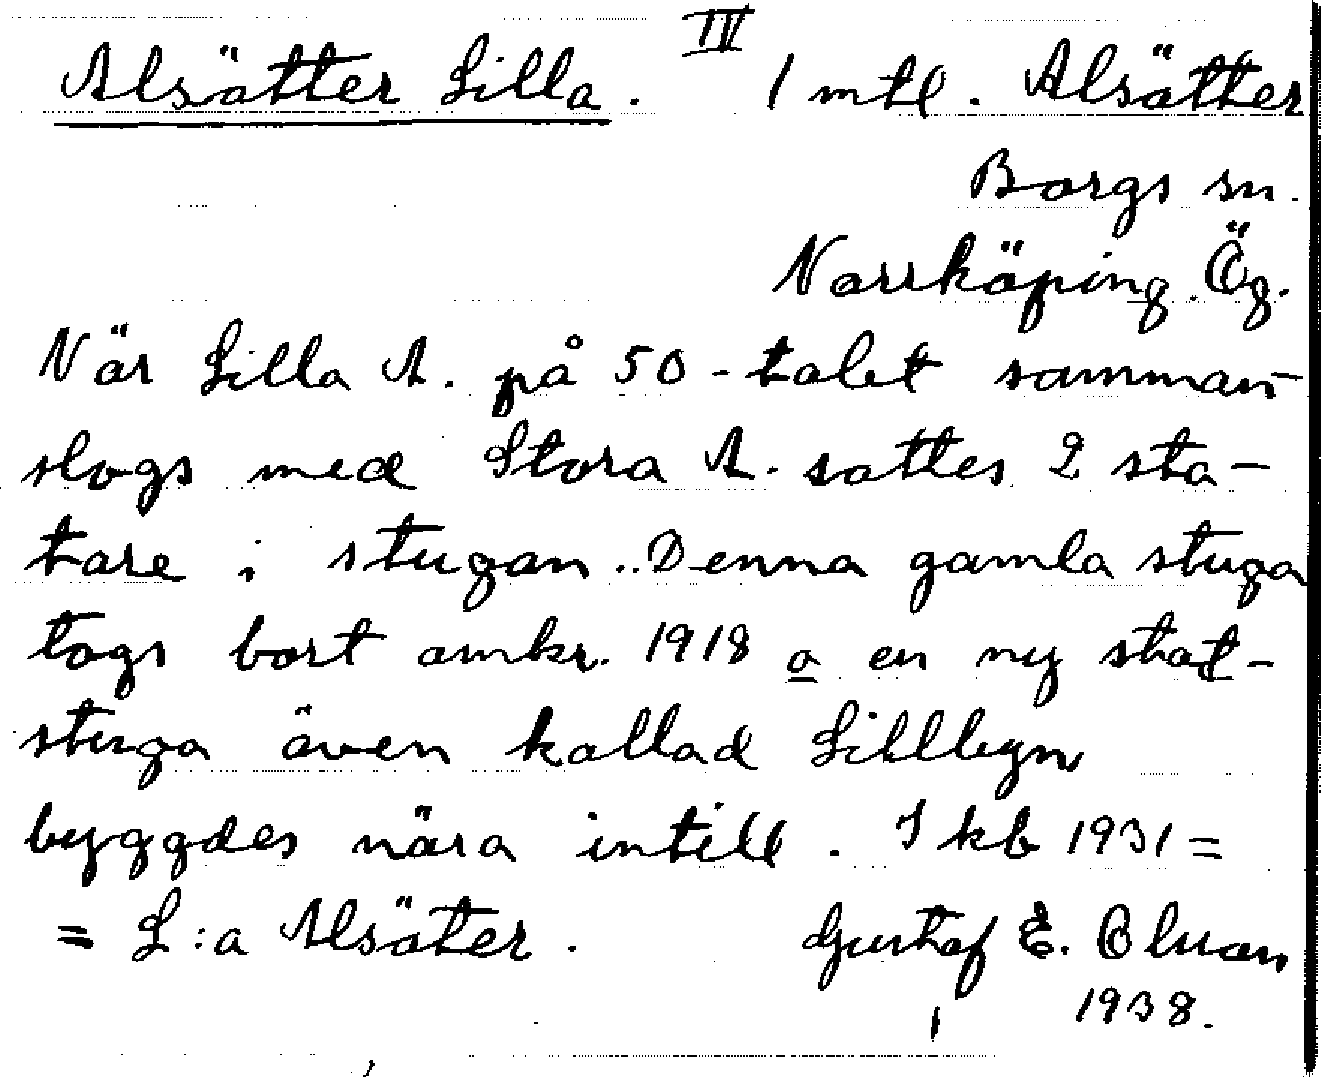 IV
Alsätter Lilla. 1 mtl. Alsätter
Borgs sn.
Norrköping. Ög.
När Lilla A. på 50-talet samman-
slogs med Stora A. sattes 2 sta-
tare i stugan. Denna gamla stuga
togs bort omkr. 1918 o en ny stat-
stuga även kallad Lillbyn
byggdes nära intill. I kb 1931 =
= L:a Alsäter. Gustaf E. Olsson
1938.